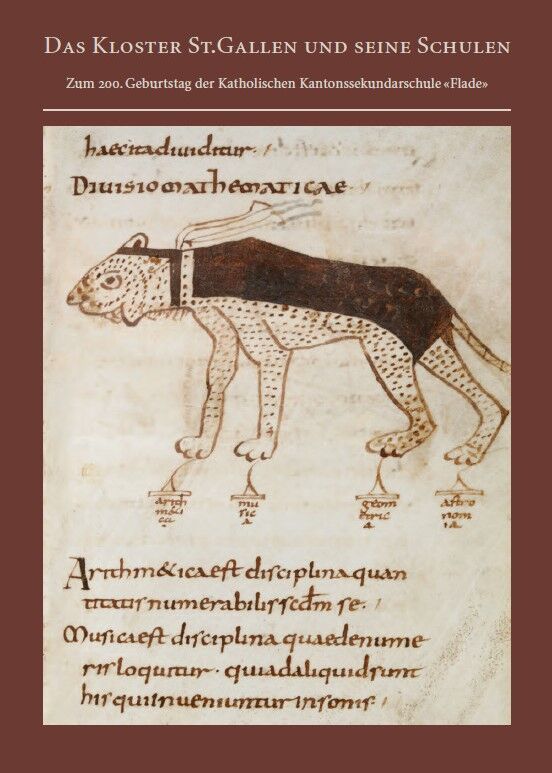 Das Kloster St.Gallen und seine Schulen
Zum 200. Geburtstag der Katholischen Kantonssekundarschule «Flade»
haecitadiuiditur.
Diuisio mathematicae
arith
m&i
ca
mu
sic
a
geom
&ric
a
astro
nom
ia
Arithm&ica est disciplina quan
titatis numerabilis scdm se.
Musica est disciplina quae denume
ris loquitur. quia daliquid sunt
his qui inueniuntur in sonis.